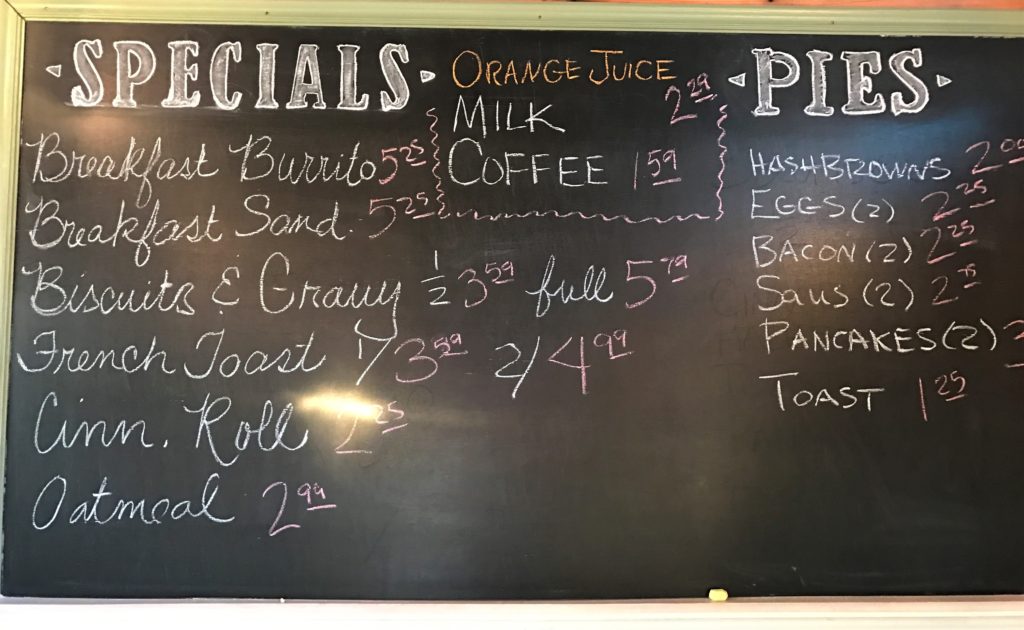 SPECIALS
Breakfast Burrito 5.25
Breakfast Sand. 5.25
Biscuits & Gravy 1/2 3.59 full 5.79
French Toast 1/ 3.59 2/ 4.99
Cinn. Roll 2.25
Oatmeal 2.99
ORANGE JUICE
MILK 2.29
COFFEE 1.59
PIES
HASHBROWNS 2.00
EGGS (2) 2.25
BACON (2) 2.25
SAUS (2) 2.75
PANCAKES (2)
TOAST 1.25